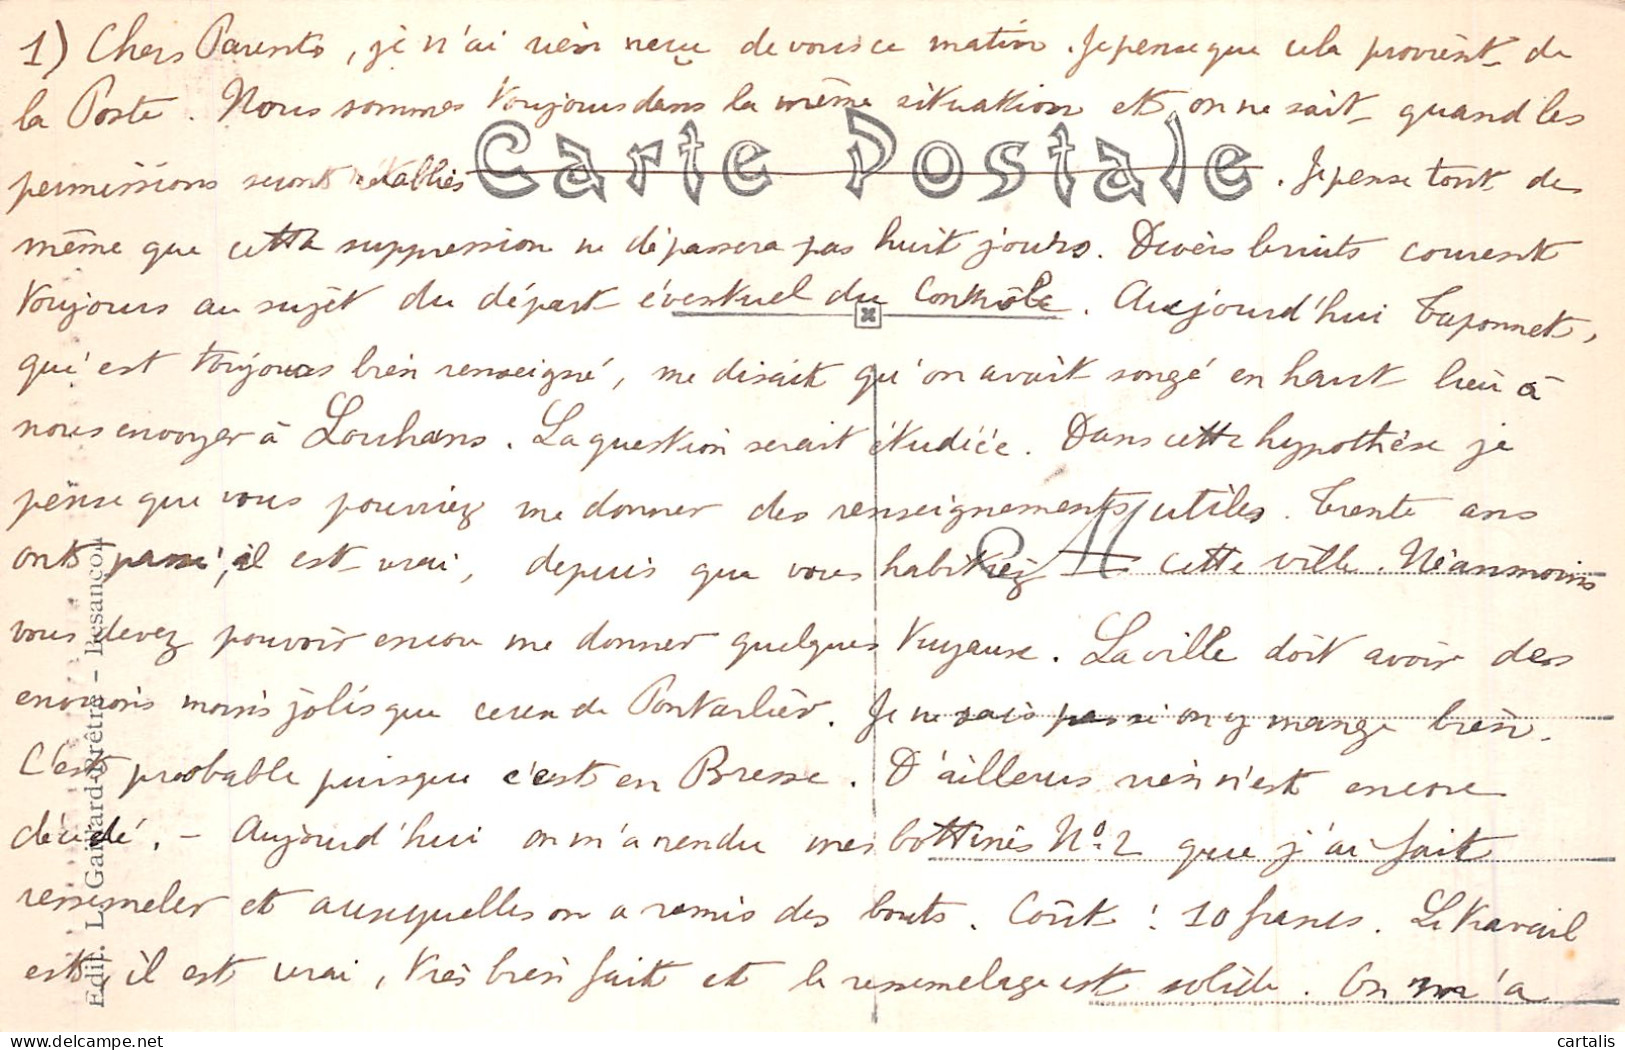 1) Chers Parents, je n'ai rien reçu de vous ce matin. Je pense que cela provient de
la Poste. Nous sommes toujours dans la même situation et on ne sait quand les
Carte Postale
permissions seront rétablies. Je pense tout de
même que cette suppression ne dépassera pas huit jours. Divers bruits courent
toujours au sujet du départ éventuel du Contrôle. Aujourd'hui Taponnet,
qui est toujours bien renseigné, me disait qu'on avait songé en haut lieu à
nous envoyer à Louhans. La question serait étudiée. Dans cette hypothèse je
pense que vous pourriez me donner des renseignements utiles. Trente ans
ont passé, il est vrai, depuis que vous habitiez cette ville. Néanmoins
vous devez pouvoir encore me donner quelques tuyaux. La ville doit avoir des
environs moins jolis que ceux de Pontarlier. Je ne sais pas si on y mange bien.
C'est probable puisque c'est en Bresse. D'ailleurs rien n'est encore
décidé. – Aujourd'hui on m'a rendu mes bottines N° 2 que j'ai fait
ressemeler et auxquelles on a remis des bouts. Coût : 10 francs. Le travail
est, il est vrai, très bien fait et le ressemelage est solide. On m'a
Edit. L. Gaillard-Prêtre - Besançon
cartalis